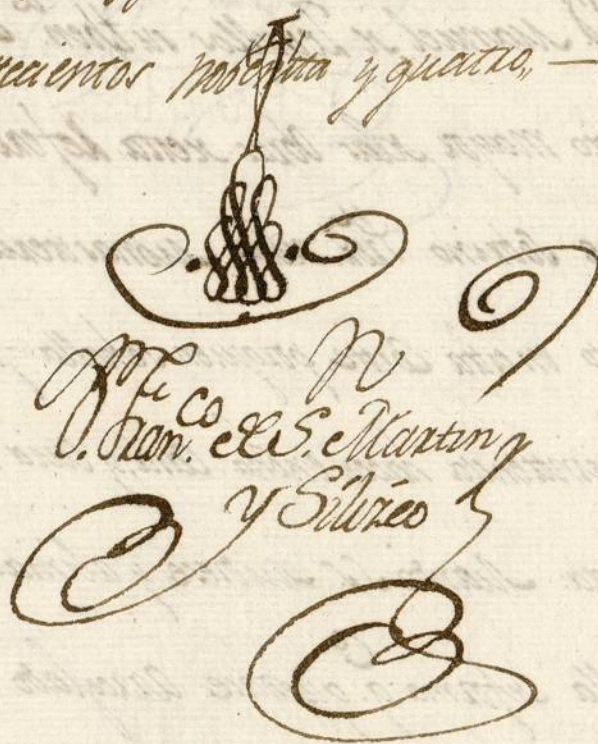 ecientos noventa y quatro,, —
Fran.co de S. Martin
y Silizeo